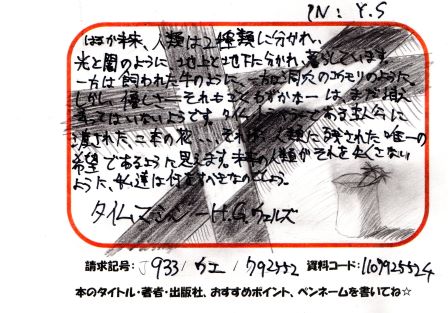 IN: Y.S
はるか未来、人類は2種類に分かれ、
光と闇のように地上と地下に分かれ、暮らしています。
一方は飼われた牛のように、一方は洞穴のコウモリのように。
しかし、優しさ
それもごくわずかな
は、まだ消え
さってはいないようです。
である主人公に
渡された、二本の花…それが、人類に残された唯一の
希望であるように思えます。未来の人類がそれをなくさない
ように、私達は何をすべきなのでしょう。
タイムマシン ーH.G.ウェルズ
請求記号: J933/ウエ/792552 資料コード:1107925524
本のタイトル・著者・出版社、おすすめポイント、ペンネームを書いてね☆